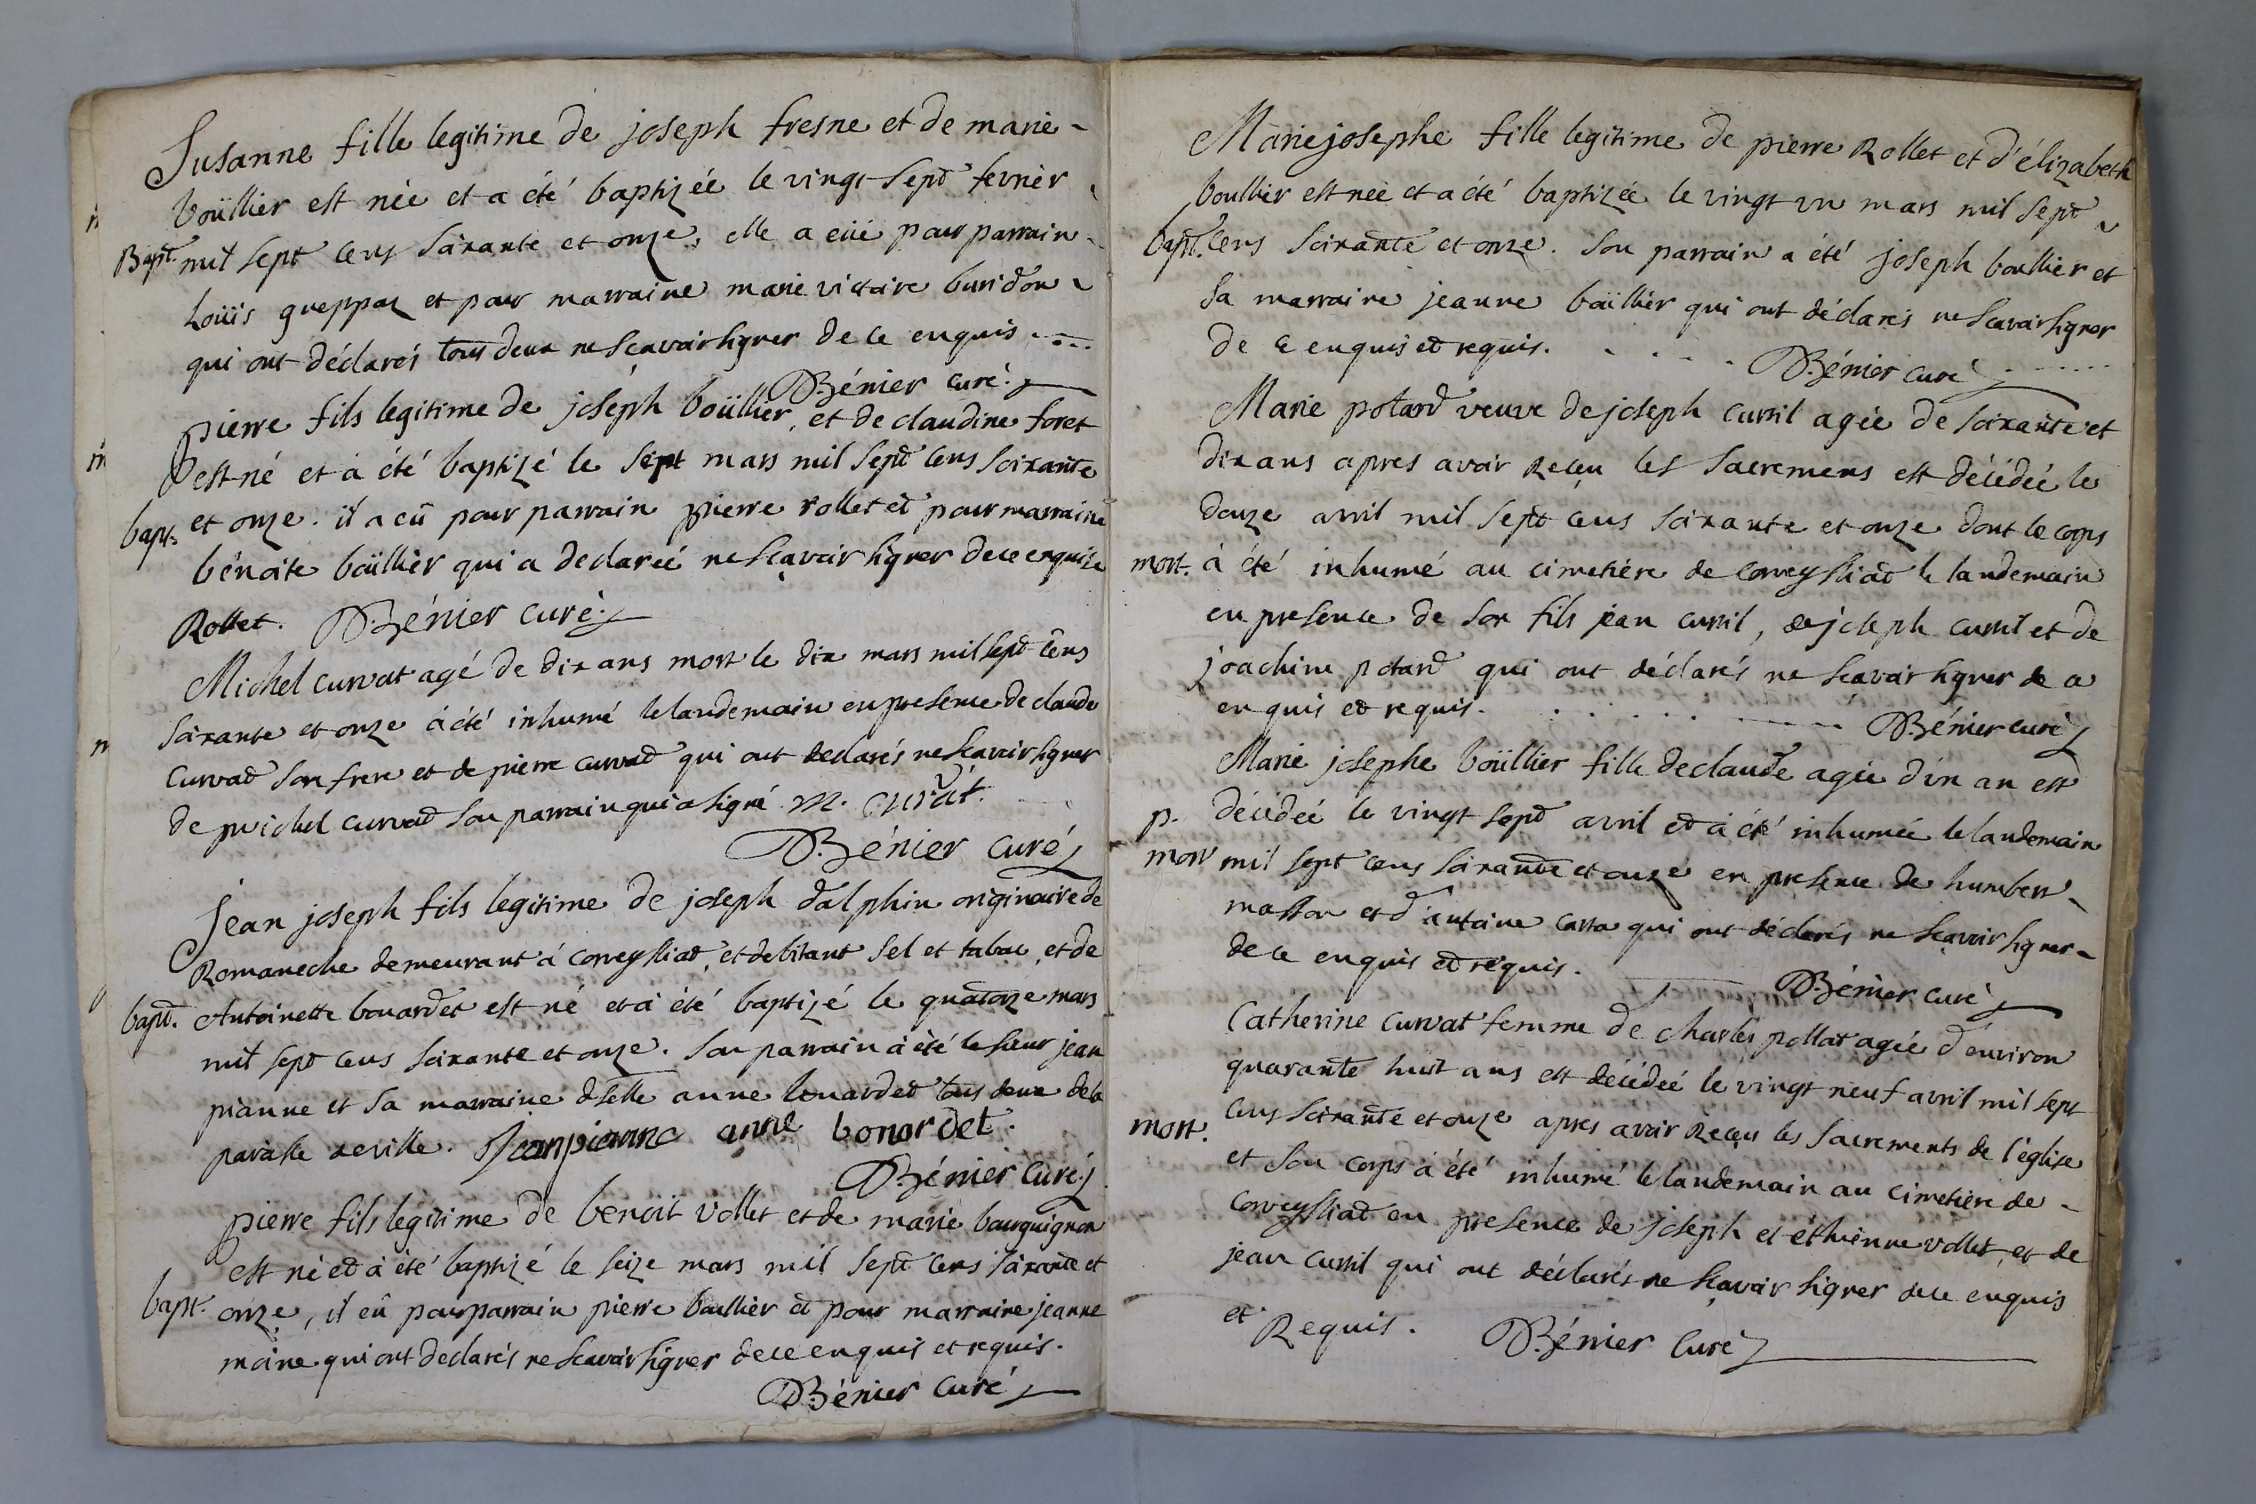 Susanne fille legitime de joseph fresne et de marie-
boüllier est née et a été baptizée le vingt Sept fevrier
Bapt. mil sept cens Soixante et onze, elle a eüe pour parrain
Loüis greppoz et pour marraine marie victoire buridon
qui ont déclarés tous deux ne scavoir signer de ce enquis.
D. Bénier curé.
pierre fils legitime de joséph boüllier, et de claudine foret
est né et à été baptizé le sept mars mil Sept cens soixante
bapt. et onze. il a eû pour parrain pierre rollet et pour marraine
bénoite boüllier qui a declareé ne sçavoir signer de ce enquise
Rollet. D. Bénier curé.
Michel curvat agé de dix ans mort le dix mars mil sept cens
soixante et onze à été inhumé le landemain en presence de claude
curvad son frere et de pierre curvad qui ont declarés ne scavoir signer
de michel curvad son parrain qui a signé. m. curvat.
D. Bénier curé
jean joseph fils legitime de joseph dalphin originaire de
Romaneche demeurant à corveyssiat, et debitant sel et tabac, et de
bapt. Antoinette bouardet est né et à été baptizé le quatorze mars
mil sept cens soixante et onze. son parrain à été le sieur jean
pianne et sa marraine dselle anne bonardet tous deux de la
paroisse de ville. Jean pianne anne bonardet.
D. Bénier curé
pierre fils legitime de benoit vollet et de marie bourguignon
est né et à été baptizé le seize mars mil Sept cens soixante et
bapt. onze, il eû pour parrain pierre boullier et pour marraine jeanne
moine. qui ont declarés ne scavoir signer de ce enquis et requis.
D. Bénier curé
Marie josephe fille legitime de pierre Rollet et d'élizabeth
boullier est née et a été baptizée le vingt un mars mil Sept
bapt. cens soixante et onze. son parrain a été joseph boullier et
sa marraine jeanne boüllier qui ont déclarés ne scavoir signer
de ce enquis et requis.
D. Bénier curé
Marie potard veuve de joseph curvil agée de soixante et
dix ans apres avoir Reçeu les Sacremens est décédée le
douze avril mil sept cens soixante et onze dont le corps
mort. à été inhumé au cimetière de corveyssiat le landemain
en presence de son fils jean curvil, de joseph curvil et de
joachim potard qui ont déclarés ne scavoir signer de ce
enquis et requis.
D. Bénier curé
Marie josephe boüllier fille de claude agée d'un an est
p. décédée le vingt sept avril et à été inhumée le landemain
mort mil sept cens soixante et onze en presence de humbert
masson et d'antoine carra qui ont déclarés ne scavoir signer-
de ce enquis et requis.
D. Bénier curé
Catherine curvat femme de charles pollat agée d'environ
quarante huit ans est décédée le vingt neuf avril mil sept
mort. cens soixante et onze apres avoir Reçeu les Sacrements de l'église
et son corps à été inhumé le landemain au cimetière de-
corveyssiat en presence de joseph et éthienne vollet, et de
jean curvil qui ont déclarés ne scavoir signer de ce enquis
et Requis. D. Bénier curé